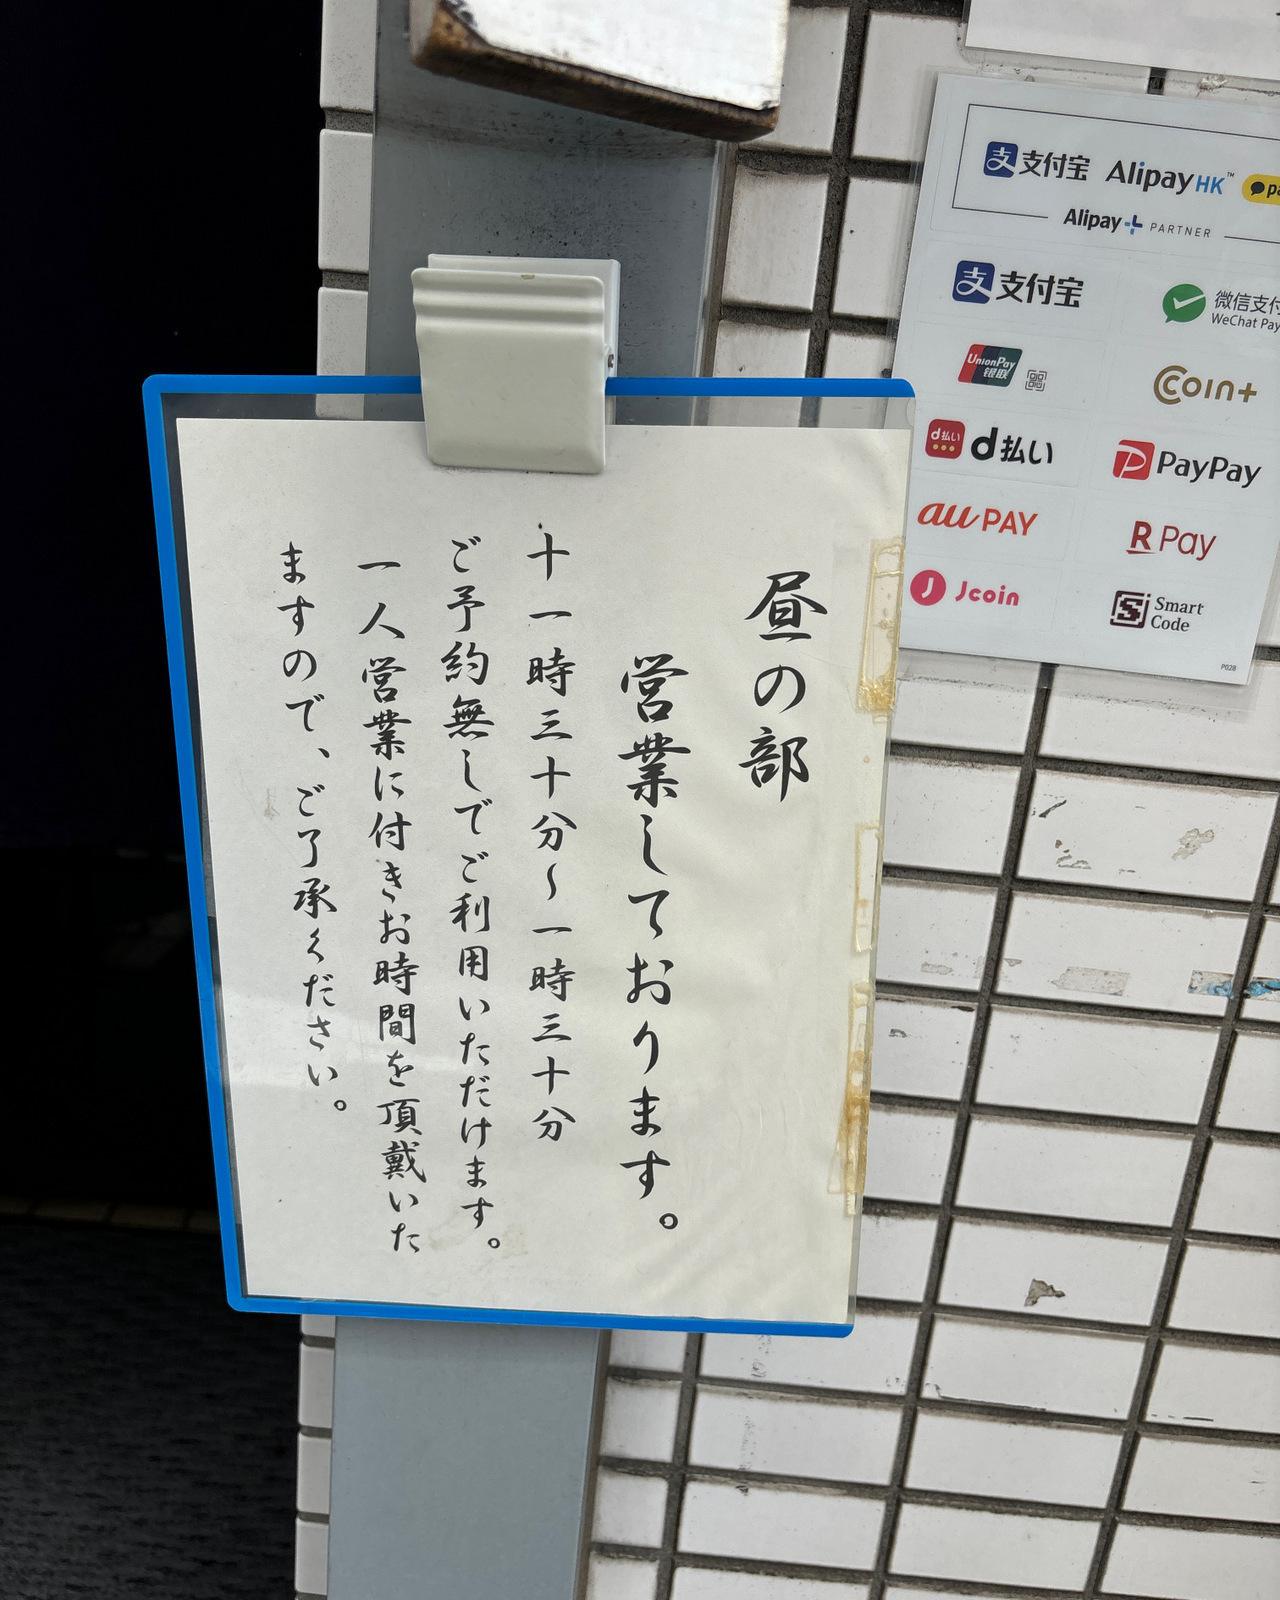 昼の部
営業しております。
十一時三十分〜一時三十分
ご予約無しでご利用いただけます。
一人営業に付きお時間を頂戴いた
ますので、ご了承ください。
支付宝 AlipayHK™
Alipay+ PARTNER
支付宝
微信支付
WeChat Pay
UnionPay
银联
Coin+
d払い d払い
PayPay
au PAY
R Pay
J Jcoin
Smart
Code
P028